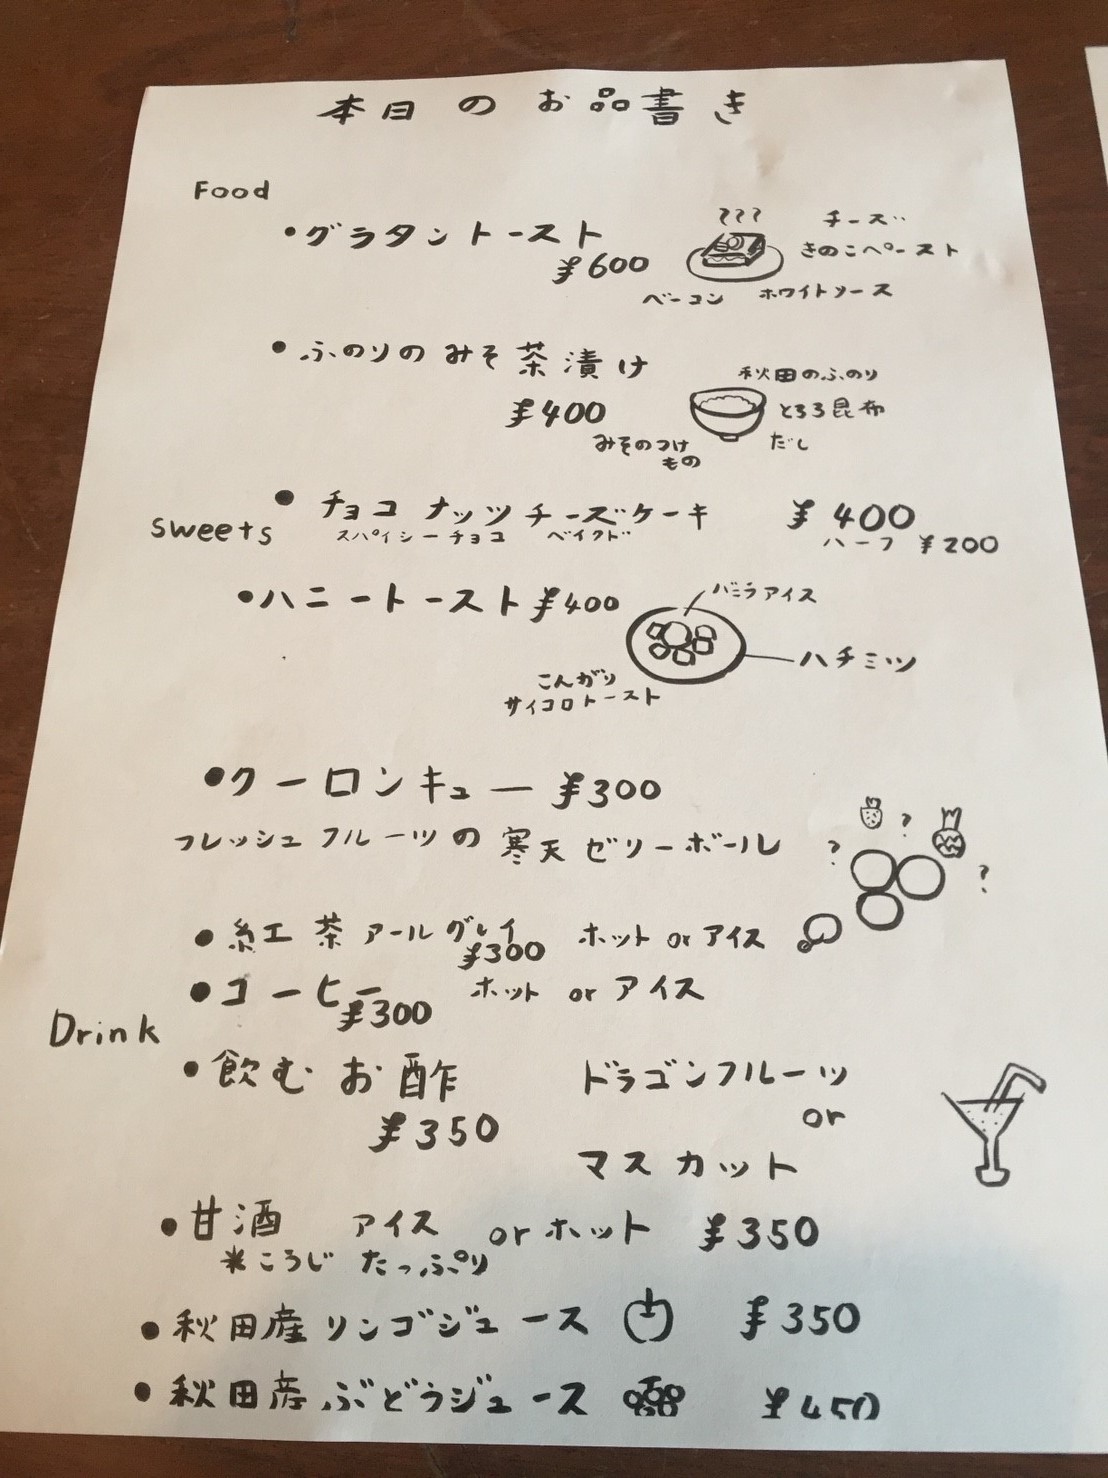 本日のお品書き
Food
・グラタントースト
¥600
チーズ
きのこペースト
ベーコン ホワイトソース
・ふのりのみそ茶漬け
¥400
秋田のふのり
とろろ昆布
みそのつけもの
だし
sweets
・チョコナッツチーズケーキ ¥400
スパイシーチョコ ベイクド ハーフ ¥200
・ハニートースト ¥400
バニラアイス
ハチミツ
こんがり
サイコロトースト
・クーロンキュー ¥300
フレッシュフルーツの寒天ゼリーボール
? ? ?
・紅茶 アールグレイ ホット or アイス
¥300
・コーヒー ホット or アイス
¥300
Drink
・飲むお酢 ドラゴンフルーツ
¥350
or
マスカット
・甘酒 アイス or ホット ¥350
*こうじ たっぷり
・秋田産リンゴジュース ¥350
・秋田産ぶどうジュース ¥450